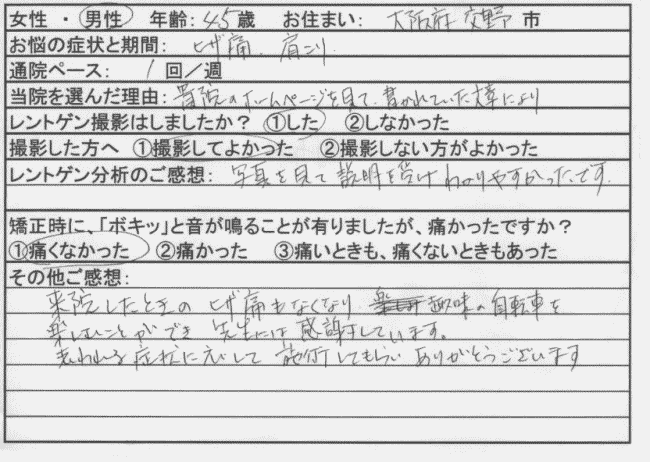 女性 ・ 男性 年齢: 45 歳 お住まい: 大阪府 交野 市
お悩の症状と期間: ヒザ痛、肩こり
通院ペース: 1 回／週
当院を選んだ理由: 貴院のホームページを見て、書かれていた文章により
レントゲン撮影はしましたか？ ①した ②しなかった
撮影した方へ ①撮影してよかった ②撮影しない方がよかった
レントゲン分析のご感想: 写真を見て説明を受けわかりやすかったです。
矯正時に、「ボキッ」と音が鳴ることが有りましたが、痛かったですか？
①痛くなかった ②痛かった ③痛いときも、痛くないときもあった
その他ご感想:
来院したときのヒザ痛もなくなり 趣味の自転車を
楽しむことができ 先生には感謝しています。
表われる症状に応じて 施術してもらい ありがとうございます